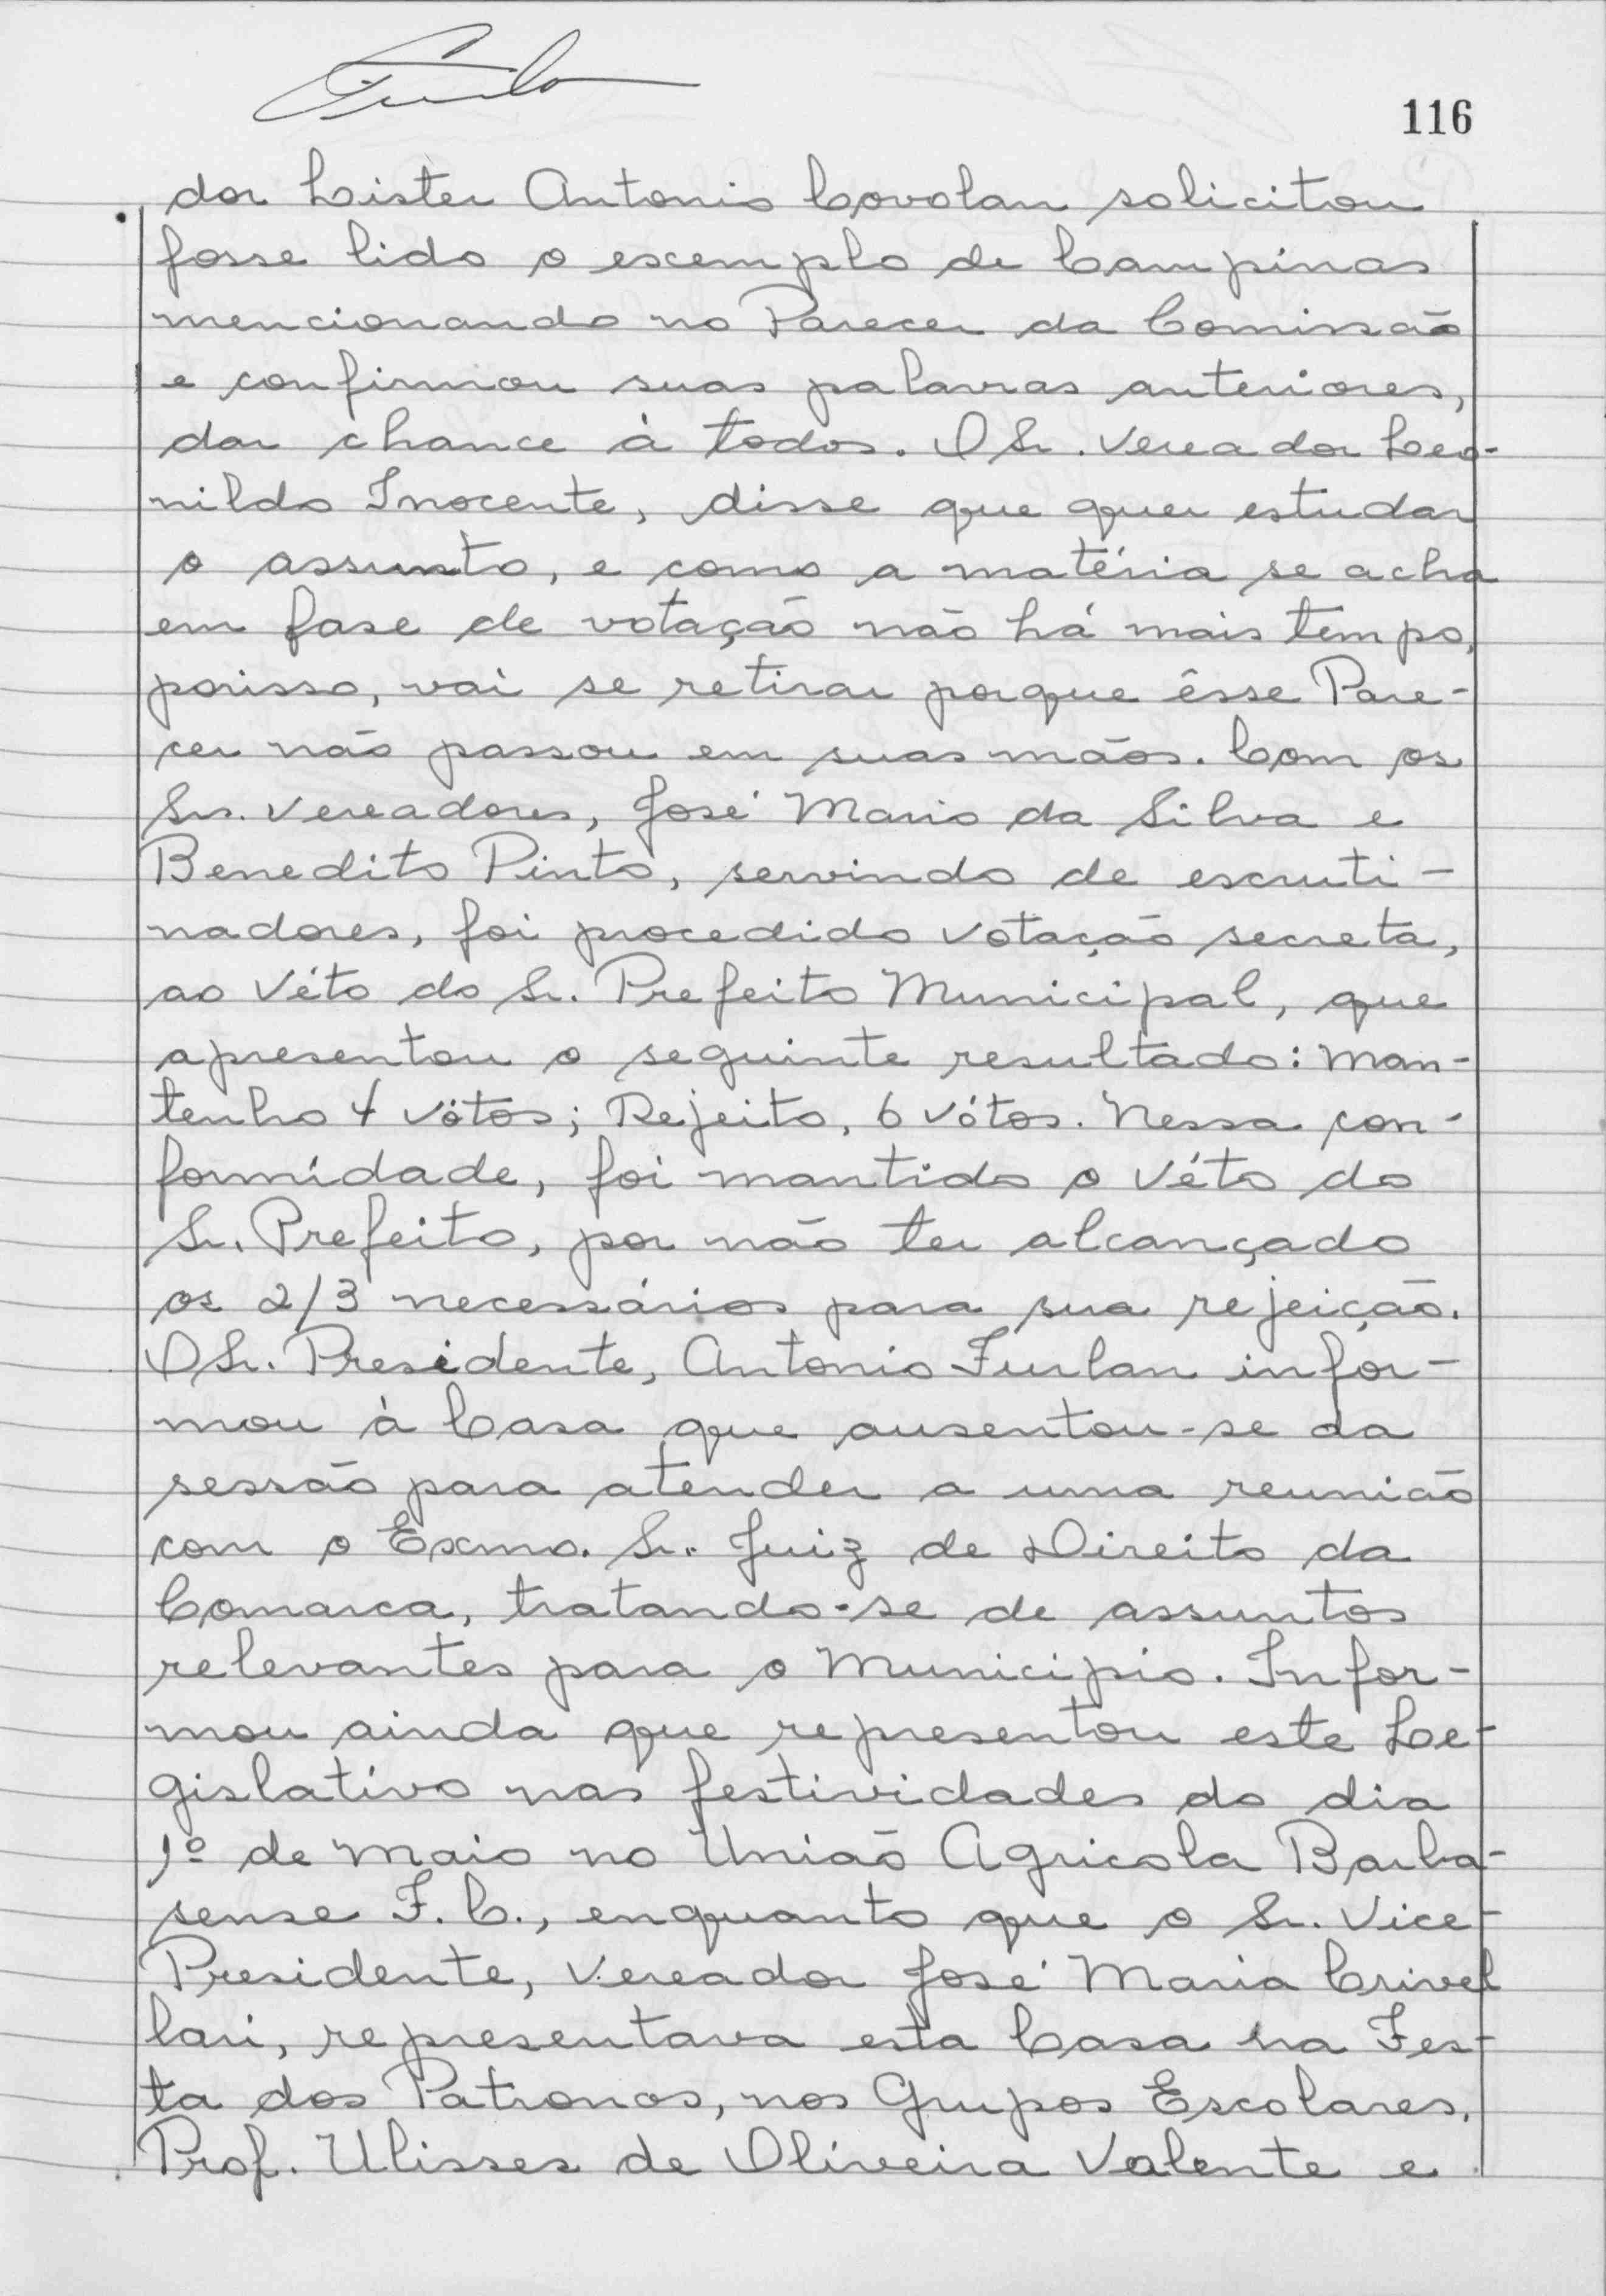 116
dor Lister Antonio Covolan solicitou
fosse lido o escemplo de Campinas
mencionando no Parecer da Comissão
e confirmou suas palavras anteriores,
dar chance à todos. O Sr. Vereador Leo-
nildo Inocente, disse que quer estudar
o assunto, e como a matéria se acha
em fase de votação não há mais tempo,
porisso, vai se retirar porque êsse Pare-
cer não passou em suas mãos. Com os
Srs. Vereadores, José Mario da Silva e
Benedito Pinto, servindo de escruti-
nadores, foi procedido votação secreta,
ao Véto do Sr. Prefeito Municipal, que
apresentou o seguinte resultado: Man-
tenho 4 vótos; Rejeito, 6 vótos. Nessa con-
formidade, foi mantido o Véto do
Sr. Prefeito, por não ter alcançado
os 2/3 necessários para sua rejeição.
O Sr. Presidente, Antonio Furlan infor-
mou à Casa que ausentou-se da
sessão para atender a uma reunião
com o Exmo. Sr. Juiz de Direito da
Comarca, tratando-se de assuntos
relevantes para o Municipio. Infor-
mou ainda que representou este Le-
gislativo nas festividades do dia
1º de Maio no União Agricola Barba-
sense F. C., enquanto que o Sr. Vice-
Presidente, Vereador José Maria Crivel
lari, representava esta Casa na Fes-
ta dos Patronos, nos Grupos Escolares,
Prof. Ulisses de Oliveira Valente e